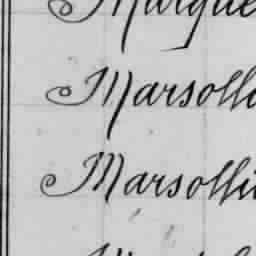 Marque
Marsolli
Marsolli